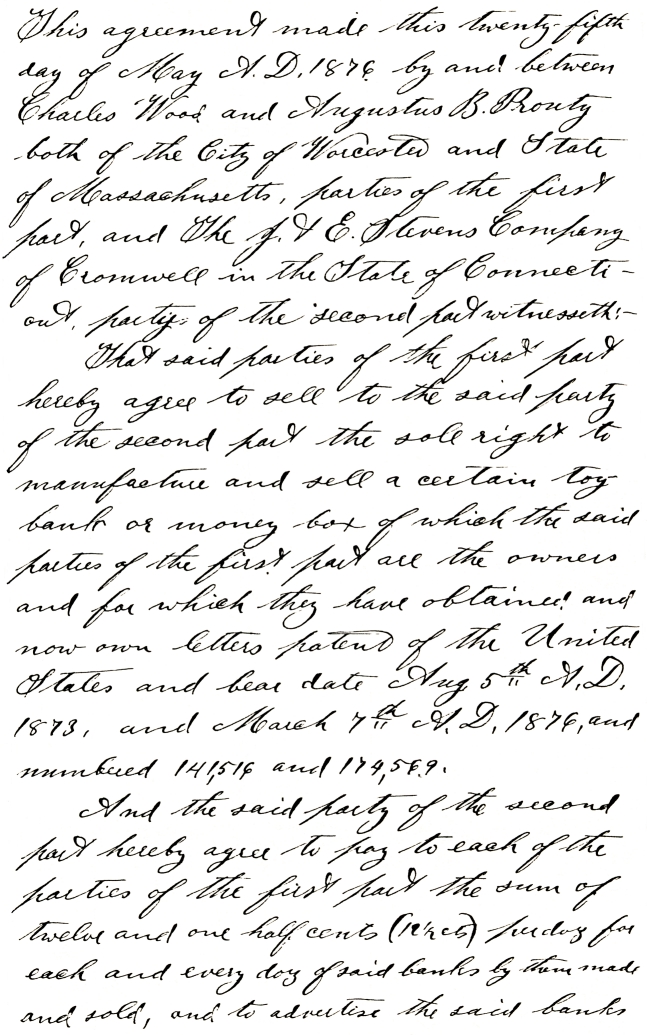 This agreement made this twenty-fifth
day of May A.D. 1876 by and between
Charles Wood and Augustus B. Prouty
both of the City of Worcester and State
of Massachusetts, parties of the first
part, and The J. & E. Stevens Company
of Cromwell in the State of Connecti-
cut, party of the second part witnesseth:-
That said parties of the first part
hereby agree to sell to the said party
of the second part the sole right to
manufacture and sell a certain toy
bank or money box of which the said
parties of the first part are the owners
and for which they have obtained and
now own letters patent of the United
States and bear date Aug 5th A.D.
1873, and March 7th A.D. 1876, and
numbered 141,516 and 174,569.
And the said party of the second
part hereby agree to pay to each of the
parties of the first part the sum of
twelve and one half cents (12½ cts) per doz for
each and every doz of said banks by them made
and sold, and to advertise the said banks